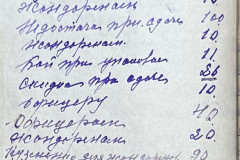 Жандармам 10
Недостача при сдаче 100
жандармам. 10.
Бой при упаковке 11.
скидка при сдаче 26
офицеру 10.
Офицерам 40.
жандармам 20.
жандарм 91